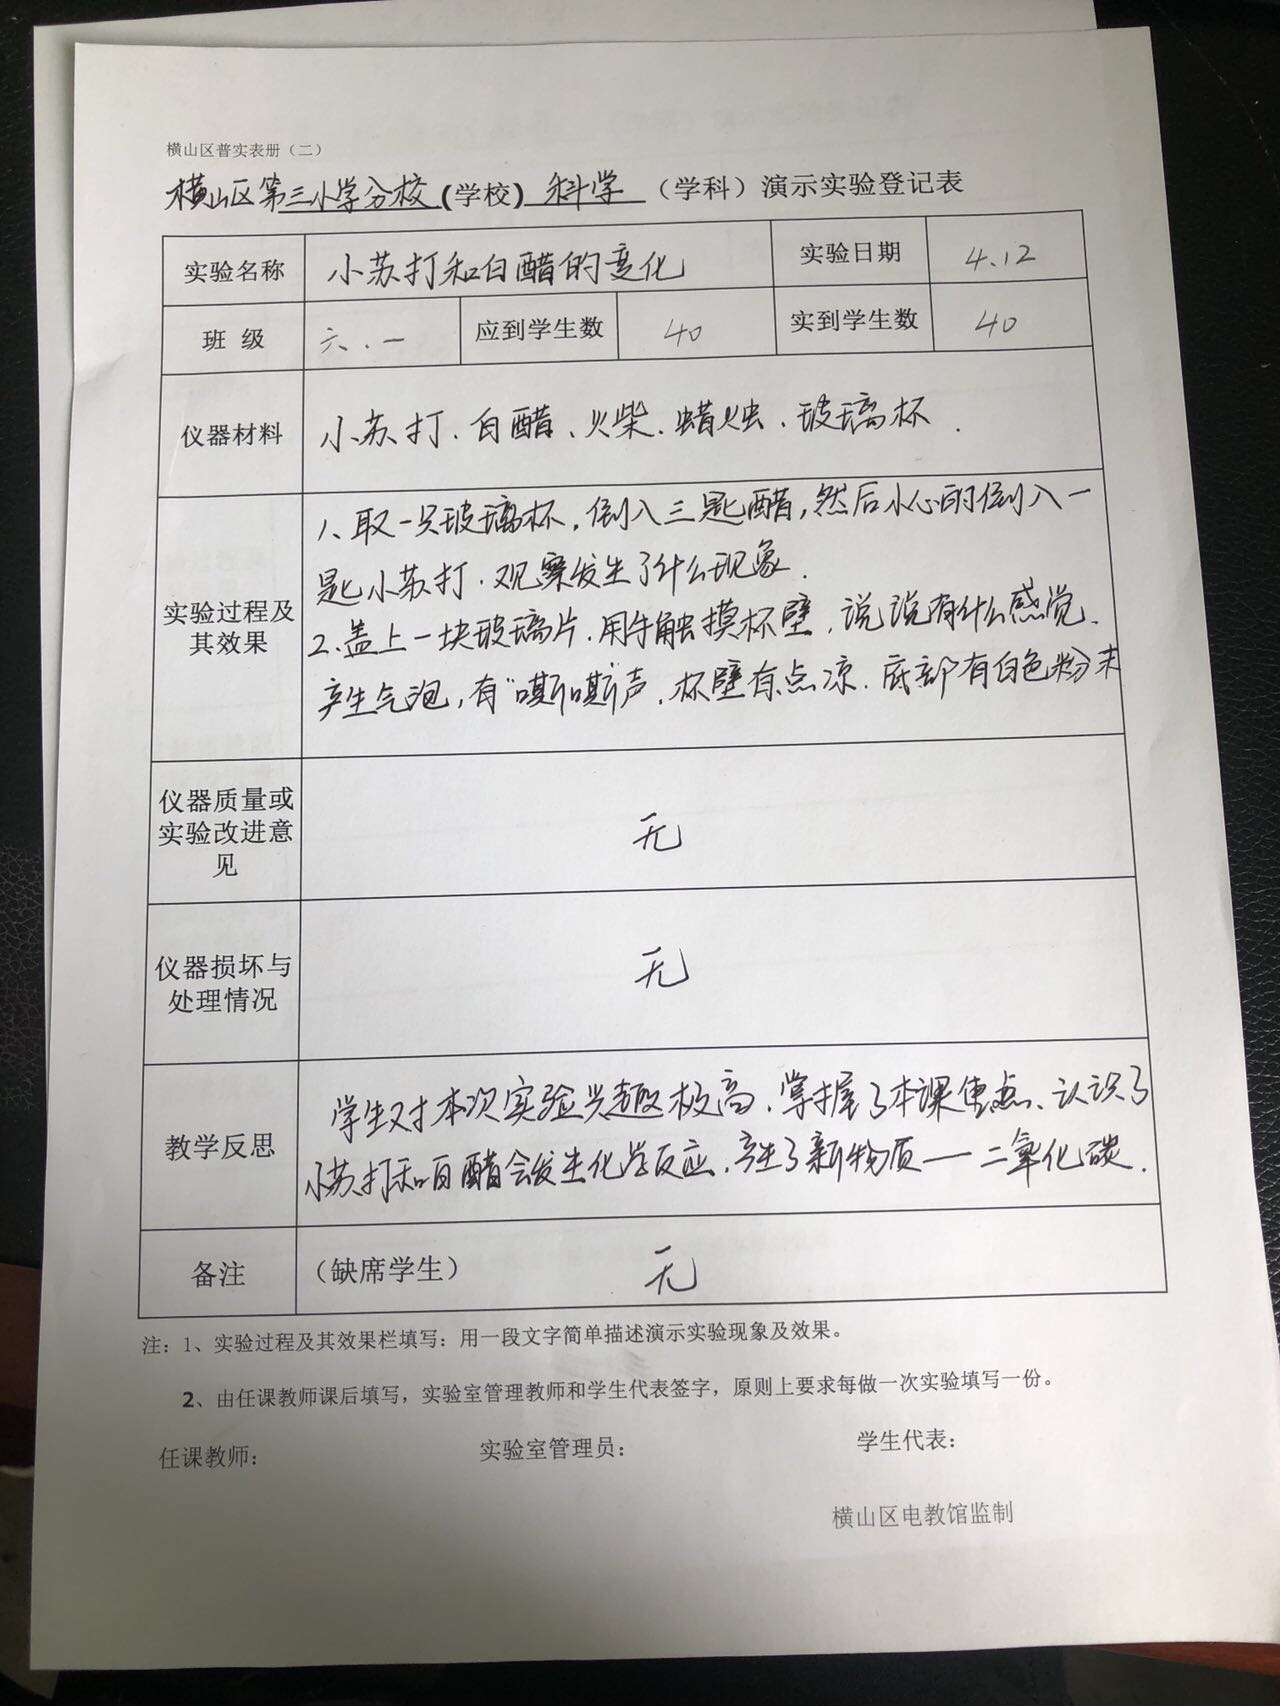 横山区普实表册（二）
横山区第三小学分校(学校) 科学 （学科）演示实验登记表
实验名称 小苏打和白醋的变化 实验日期 4.12
班 级 六．一 应到学生数 40 实到学生数 40
仪器材料 小苏打、白醋、火柴、蜡烛、玻璃杯．
实验过程及其效果
1、取一只玻璃杯，倒入三匙醋，然后小心的倒入一
匙小苏打．观察发生了什么现象．
2、盖上一块玻璃片．用手触摸杯壁，说说有什么感觉．
产生气泡，有“嘶嘶”声．杯壁有点凉．底部有白色粉末
仪器质量或
实验改进意
见
无
仪器损坏与
处理情况
无
教学反思
学生对本次实验兴趣极高．掌握了本课焦点、认识了
小苏打和白醋会发生化学反应．产生了新物质一二氧化碳．
备注 （缺席学生） 无
注：1、实验过程及其效果栏填写：用一段文字简单描述演示实验现象及效果。
2、由任课教师课后填写，实验室管理教师和学生代表签字，原则上要求每做一次实验填写一份。
任课教师： 实验室管理员： 学生代表：
横山区电教馆监制